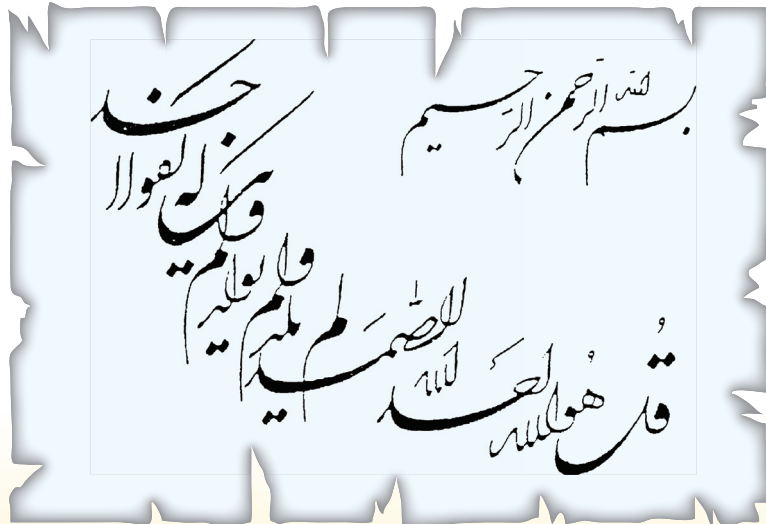 بسم الله الرحمن الرحیم
قل هو الله احد الله الصمد لم یلد و لم یولد و لم یکن له کفوا احد